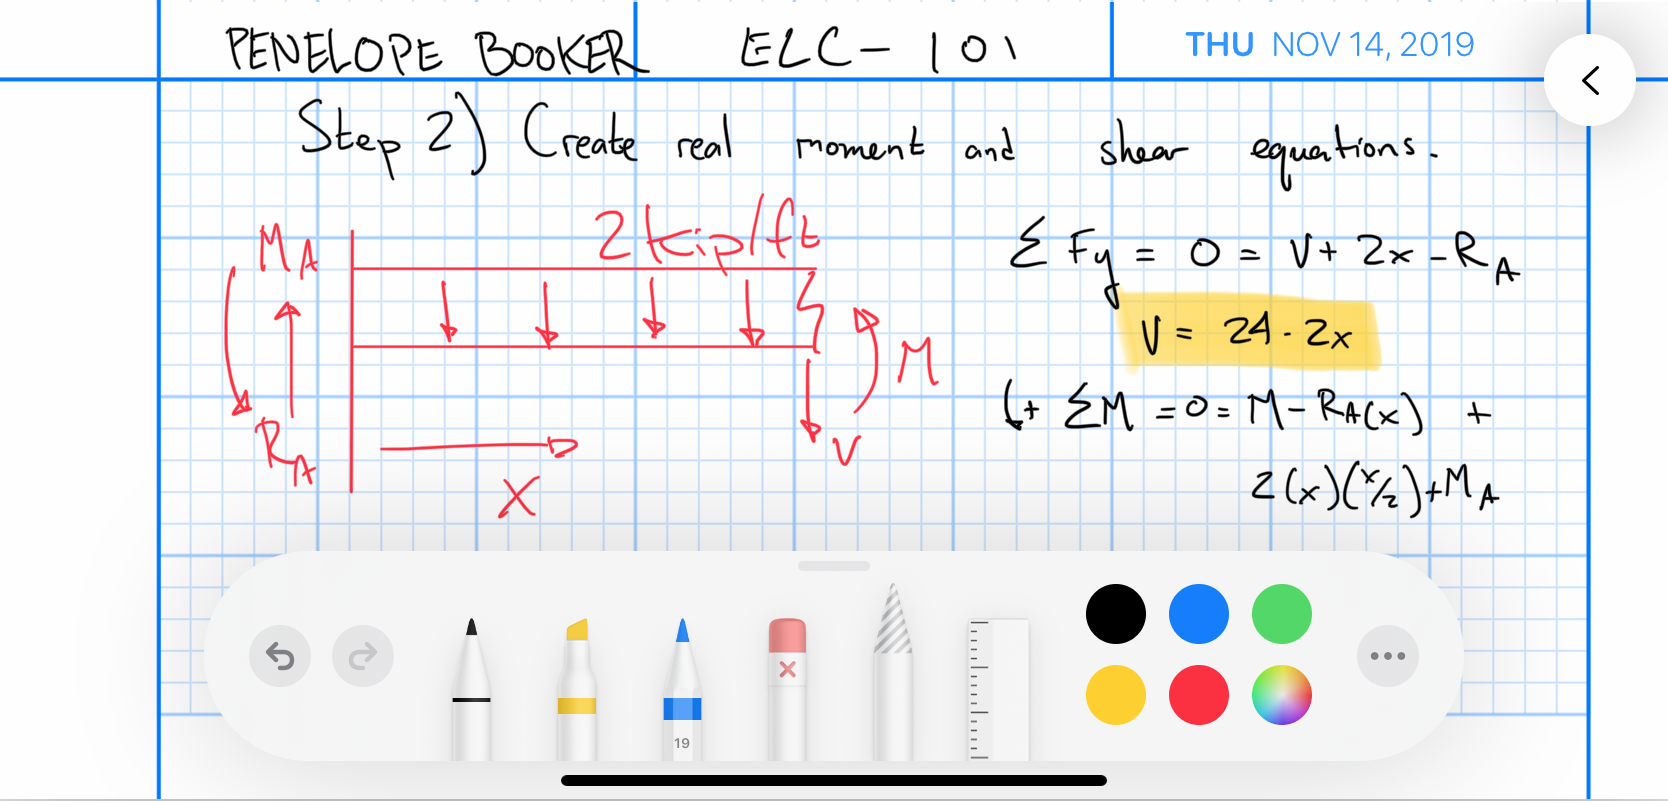 PENELOPE BOOKER ELC-101 THU NOV 14, 2019
Step 2) Create real moment and shear equations.
2kip/ft
MA
RA
X
M
V
ΣFy = 0 = V + 2x - RA
V = 24 - 2x
(+ ΣM = 0 = M - RA(x) +
2(x)(x/2) + MA
19